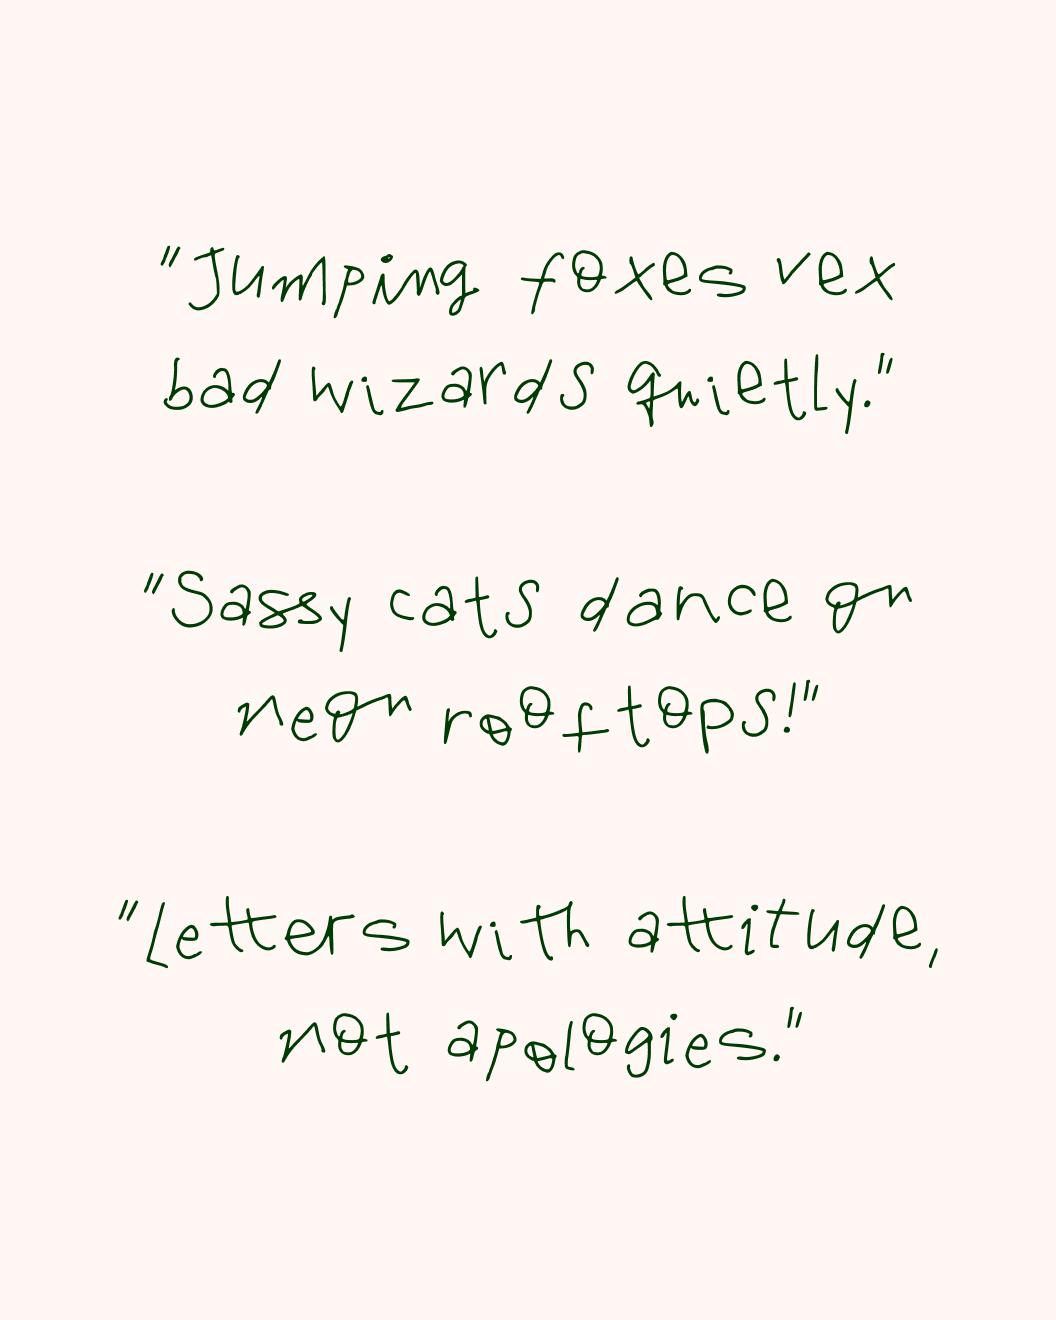 "Jumping foxes vex
bad wizards quietly."
"Sassy cats dance on
neon rooftops!"
"Letters with attitude,
not apologies."